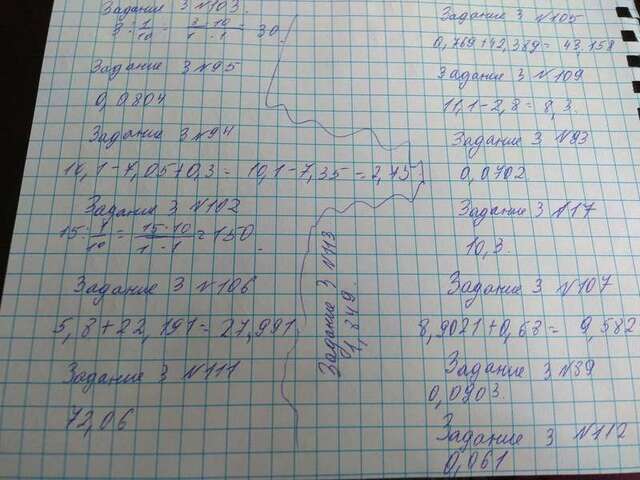 Задание 3 №103.
3 : 1/10 = 3·10/1·1 = 30.
Задание 3 №95
0,0804
Задание 3 №94
10,1-7,05+0,3 = 10,1-7,35 = 2,75
Задание 3 №102
15 : 1/10 = 15·10/1·1 = 150.
Задание 3 №106
5,8+22,191=27,991
Задание 3 №111
72,06
Задание 3 №113
1,849.
Задание 3 №105
0,769+42,389= 43,158
Задание 3 №109
11,1-2,8=8,3.
Задание 3 №93
0,0702
Задание 3 №17
10,3.
Задание 3 №107
8,9021+0,68= 9,582
Задание 3 №89
0,0903.
Задание 3 №112
0,061